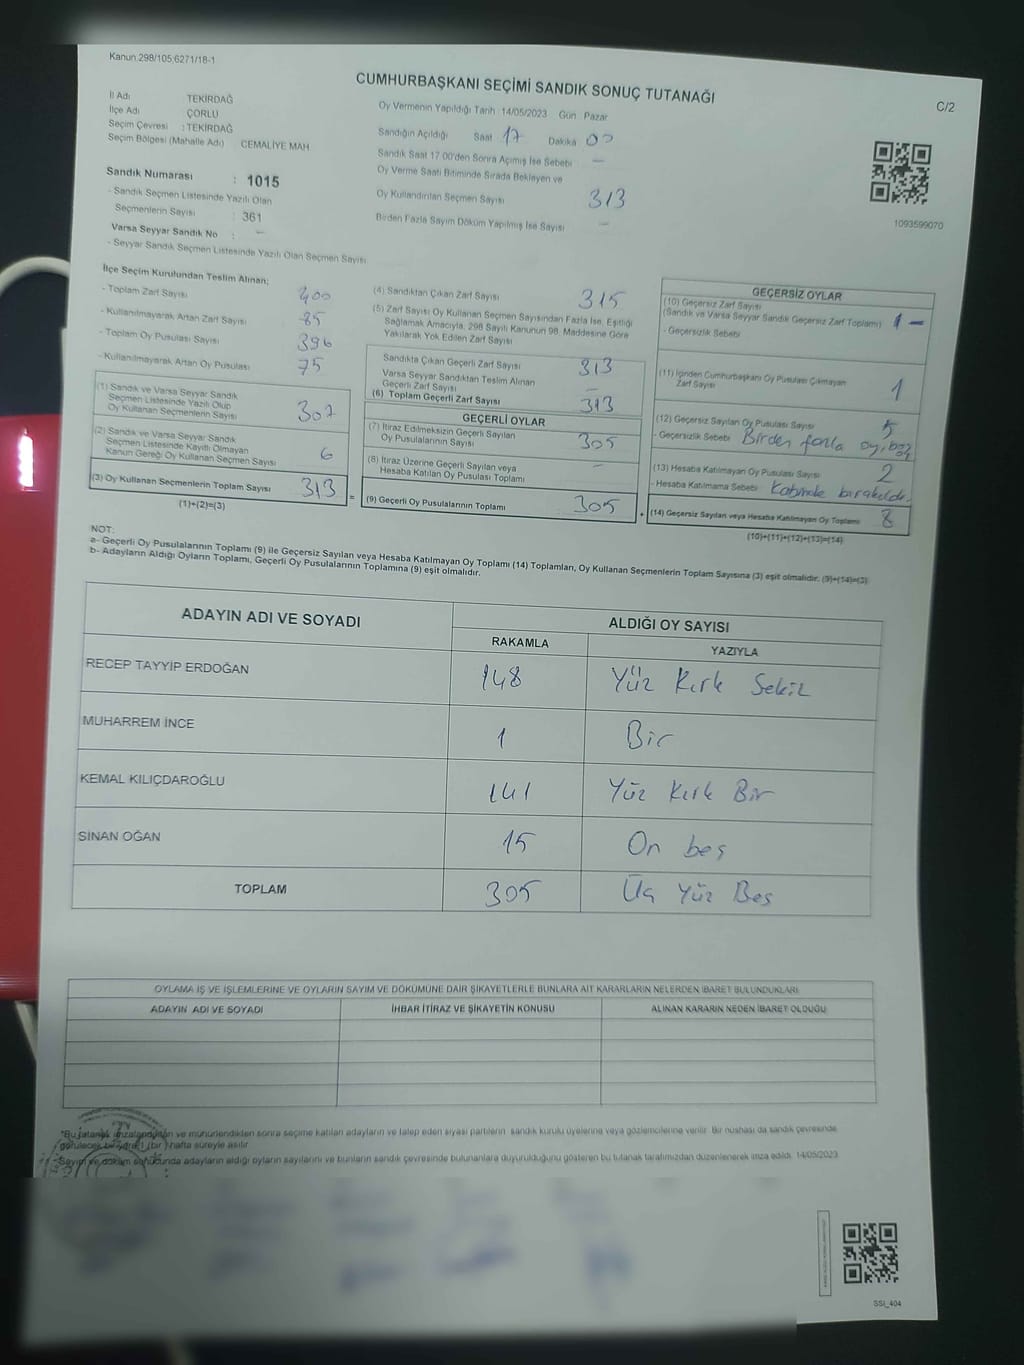 Kanun:298/105;6271/18-1
CUMHURBAŞKANI SEÇİMİ SANDIK SONUÇ TUTANAĞI
C/2
İl Adı TEKİRDAĞ
İlçe Adı ÇORLU
Seçim Çevresi : TEKİRDAĞ
Seçim Bölgesi (Mahalle Adı) CEMALİYE MAH
Sandık Numarası : 1015
- Sandık Seçmen Listesinde Yazılı Olan
Seçmenlerin Sayısı : 361
Varsa Seyyar Sandık No : -
- Seyyar Sandık Seçmen Listesinde Yazılı Olan Seçmen Sayısı
Oy Vermenin Yapıldığı Tarih : 14/05/2023 Gün Pazar
Sandığın Açıldığı Saat 17 Dakika 00
Sandık Saat 17:00'den Sonra Açımış İse Sebebi -
Oy Verme Saati Bitiminde Sırada Bekleyen ve
Oy Kullandırılan Seçmen Sayısı 313
Birden Fazla Sayım Döküm Yapılmış İse Sayısı -
1093599070
İlçe Seçim Kurulundan Teslim Alınan;
- Toplam Zarf Sayısı 400
- Kullanılmayarak Artan Zarf Sayısı 85
- Toplam Oy Pusulası Sayısı 396
- Kullanılmayarak Artan Oy Pusulası 75
(1) Sandık ve Varsa Seyyar Sandık
Seçmen Listesinde Yazılı Olup
Oy Kullanan Seçmenlerin Sayısı 307
(2) Sandık ve Varsa Seyyar Sandık
Seçmen Listesinde Kayıtlı Olmayan
Kanun Gereği Oy Kullanan Seçmen Sayısı 6
(3) Oy Kullanan Seçmenlerin Toplam Sayısı 313 =
(1)+(2)=(3)
(4) Sandıktan Çıkan Zarf Sayısı 315
(5) Zarf Sayısı Oy Kullanan Seçmen Sayısından Fazla İse, Eşitliği
Sağlamak Amacıyla, 298 Sayılı Kanunun 98. Maddesine Göre
Yakılarak Yok Edilen Zarf Sayısı
Sandıkta Çıkan Geçerli Zarf Sayısı 313
Varsa Seyyar Sandıktan Teslim Alınan
Geçerli Zarf Sayısı -
(6) Toplam Geçerli Zarf Sayısı 313
GEÇERLİ OYLAR
(7) İtiraz Edilmeksizin Geçerli Sayılan
Oy Pusulalarının Sayısı 305
(8) İtiraz Üzerine Geçerli Sayılan veya
Hesaba Katılan Oy Pusulası Toplamı -
(9) Geçerli Oy Pusulalarının Toplamı 305 +
GEÇERSİZ OYLAR
(10) Geçersiz Zarf Sayısı
(Sandık ve Varsa Seyyar Sandık Geçersiz Zarf Toplamı) 1 -
- Geçersizlik Sebebi
(11) İçinden Cumhurbaşkanı Oy Pusulası Çıkmayan
Zarf Sayısı 1
(12) Geçersiz Sayılan Oy Pusulası Sayısı 5
- Geçersizlik Sebebi Birden fazla oy, boş oy
(13) Hesaba Katılmayan Oy Pusulası Sayısı 2
- Hesaba Katılmama Sebebi Kabinde bırakıldı.
(14) Geçersiz Sayılan veya Hesaba Katılmayan Oy Toplamı 8
(10)+(11)+(12)+(13)=(14)
NOT:
a- Geçerli Oy Pusulalarının Toplamı (9) ile Geçersiz Sayılan veya Hesaba Katılmayan Oy Toplamı (14) Toplamları, Oy Kullanan Seçmenlerin Toplam Sayısına (3) eşit olmalıdır. (9)+(14)=(3)
b- Adayların Aldığı Oyların Toplamı, Geçerli Oy Pusulalarının Toplamına (9) eşit olmalıdır.
ADAYIN ADI VE SOYADI ALDIĞI OY SAYISI
RAKAMLA YAZIYLA
RECEP TAYYİP ERDOĞAN 148 Yüz Kırk Sekiz
MUHARREM İNCE 1 Bir
KEMAL KILIÇDAROĞLU 141 Yüz Kırk Bir
SİNAN OĞAN 15 On beş
TOPLAM 305 Üç Yüz Beş
OYLAMA İŞ VE İŞLEMLERİNE VE OYLARIN SAYIM VE DÖKÜMÜNE DAİR ŞİKAYETLERLE BUNLARA AİT KARARLARIN NELERDEN İBARET BULUNDUKLARI
ADAYIN ADI VE SOYADI İHBAR İTİRAZ VE ŞİKAYETİN KONUSU ALINAN KARARIN NEDEN İBARET OLDUĞU
*Bu tutanak imzalandıktan ve mühürlendikten sonra seçime katılan adayların ve talep eden siyasi partilerin sandık kurulu üyelerine veya gözlemcilerine verilir. Bir nüshası da sandık çevresinde
görülecek bir yere 1 (bir) hafta süreyle asılır.
*Sayım ve döküm sonucunda adayların aldığı oyların sayılarını ve bunların sandık çevresinde bulunanlara duyurulduğunu gösteren bu tutanak tarafımızdan düzenlenerek imza edildi. 14/05/2023
SSI_404